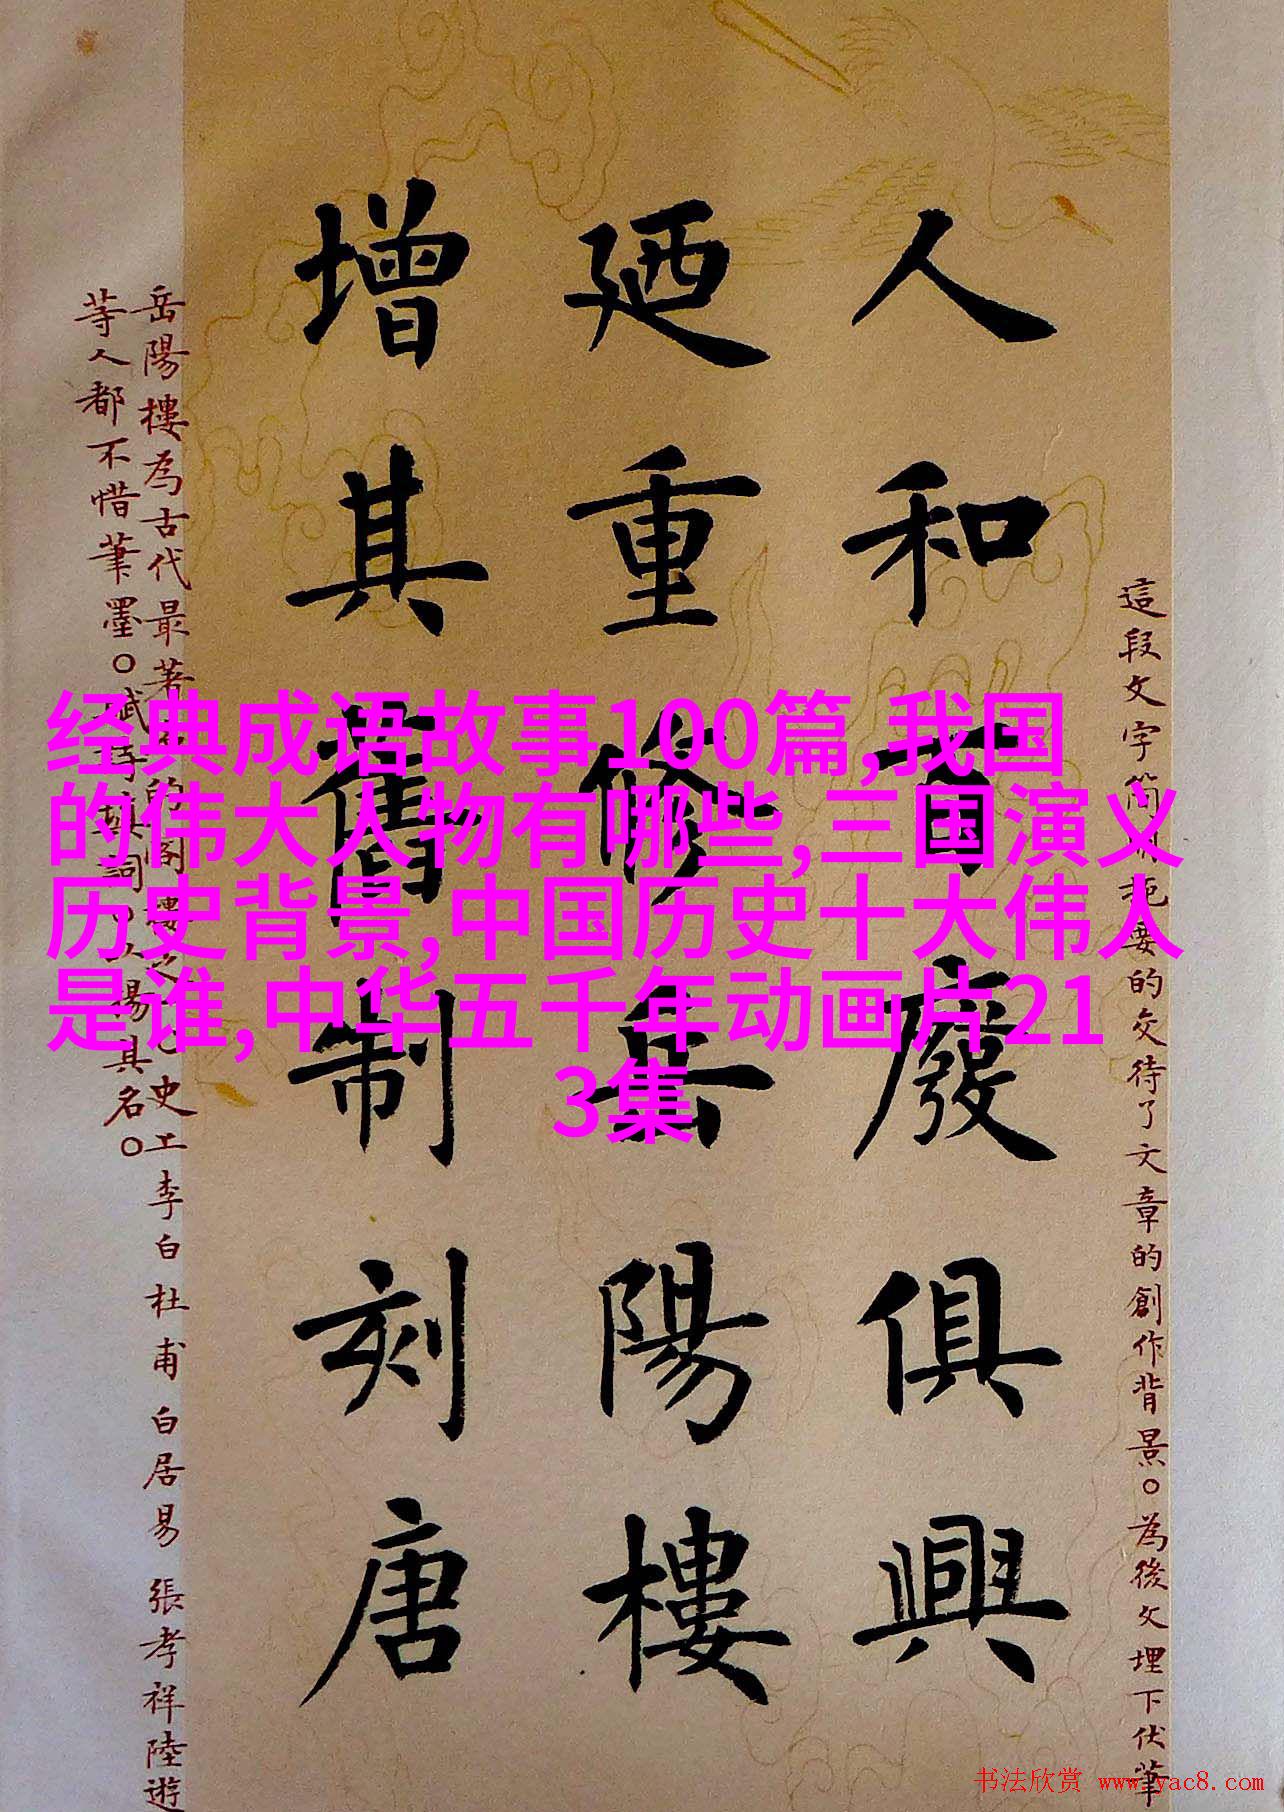 這段文字简明扼要的交待了文章的創作背景。為後文埋下伏筆
人和百廢俱興
廼重修岳陽樓
增其舊制刻唐
岳陽樓為古代最著名的閣樓之一。史上李白杜甫白居易張孝祥陸遊
等人都不惜筆墨。賦詩填詞，以揚其名。
经典成语故事100篇,我国
的伟大人物有哪些,三国演义
历史背景,中国历史十大伟人
是谁,中华五千年动画片21
3集
书法欣赏 www.yac8.com